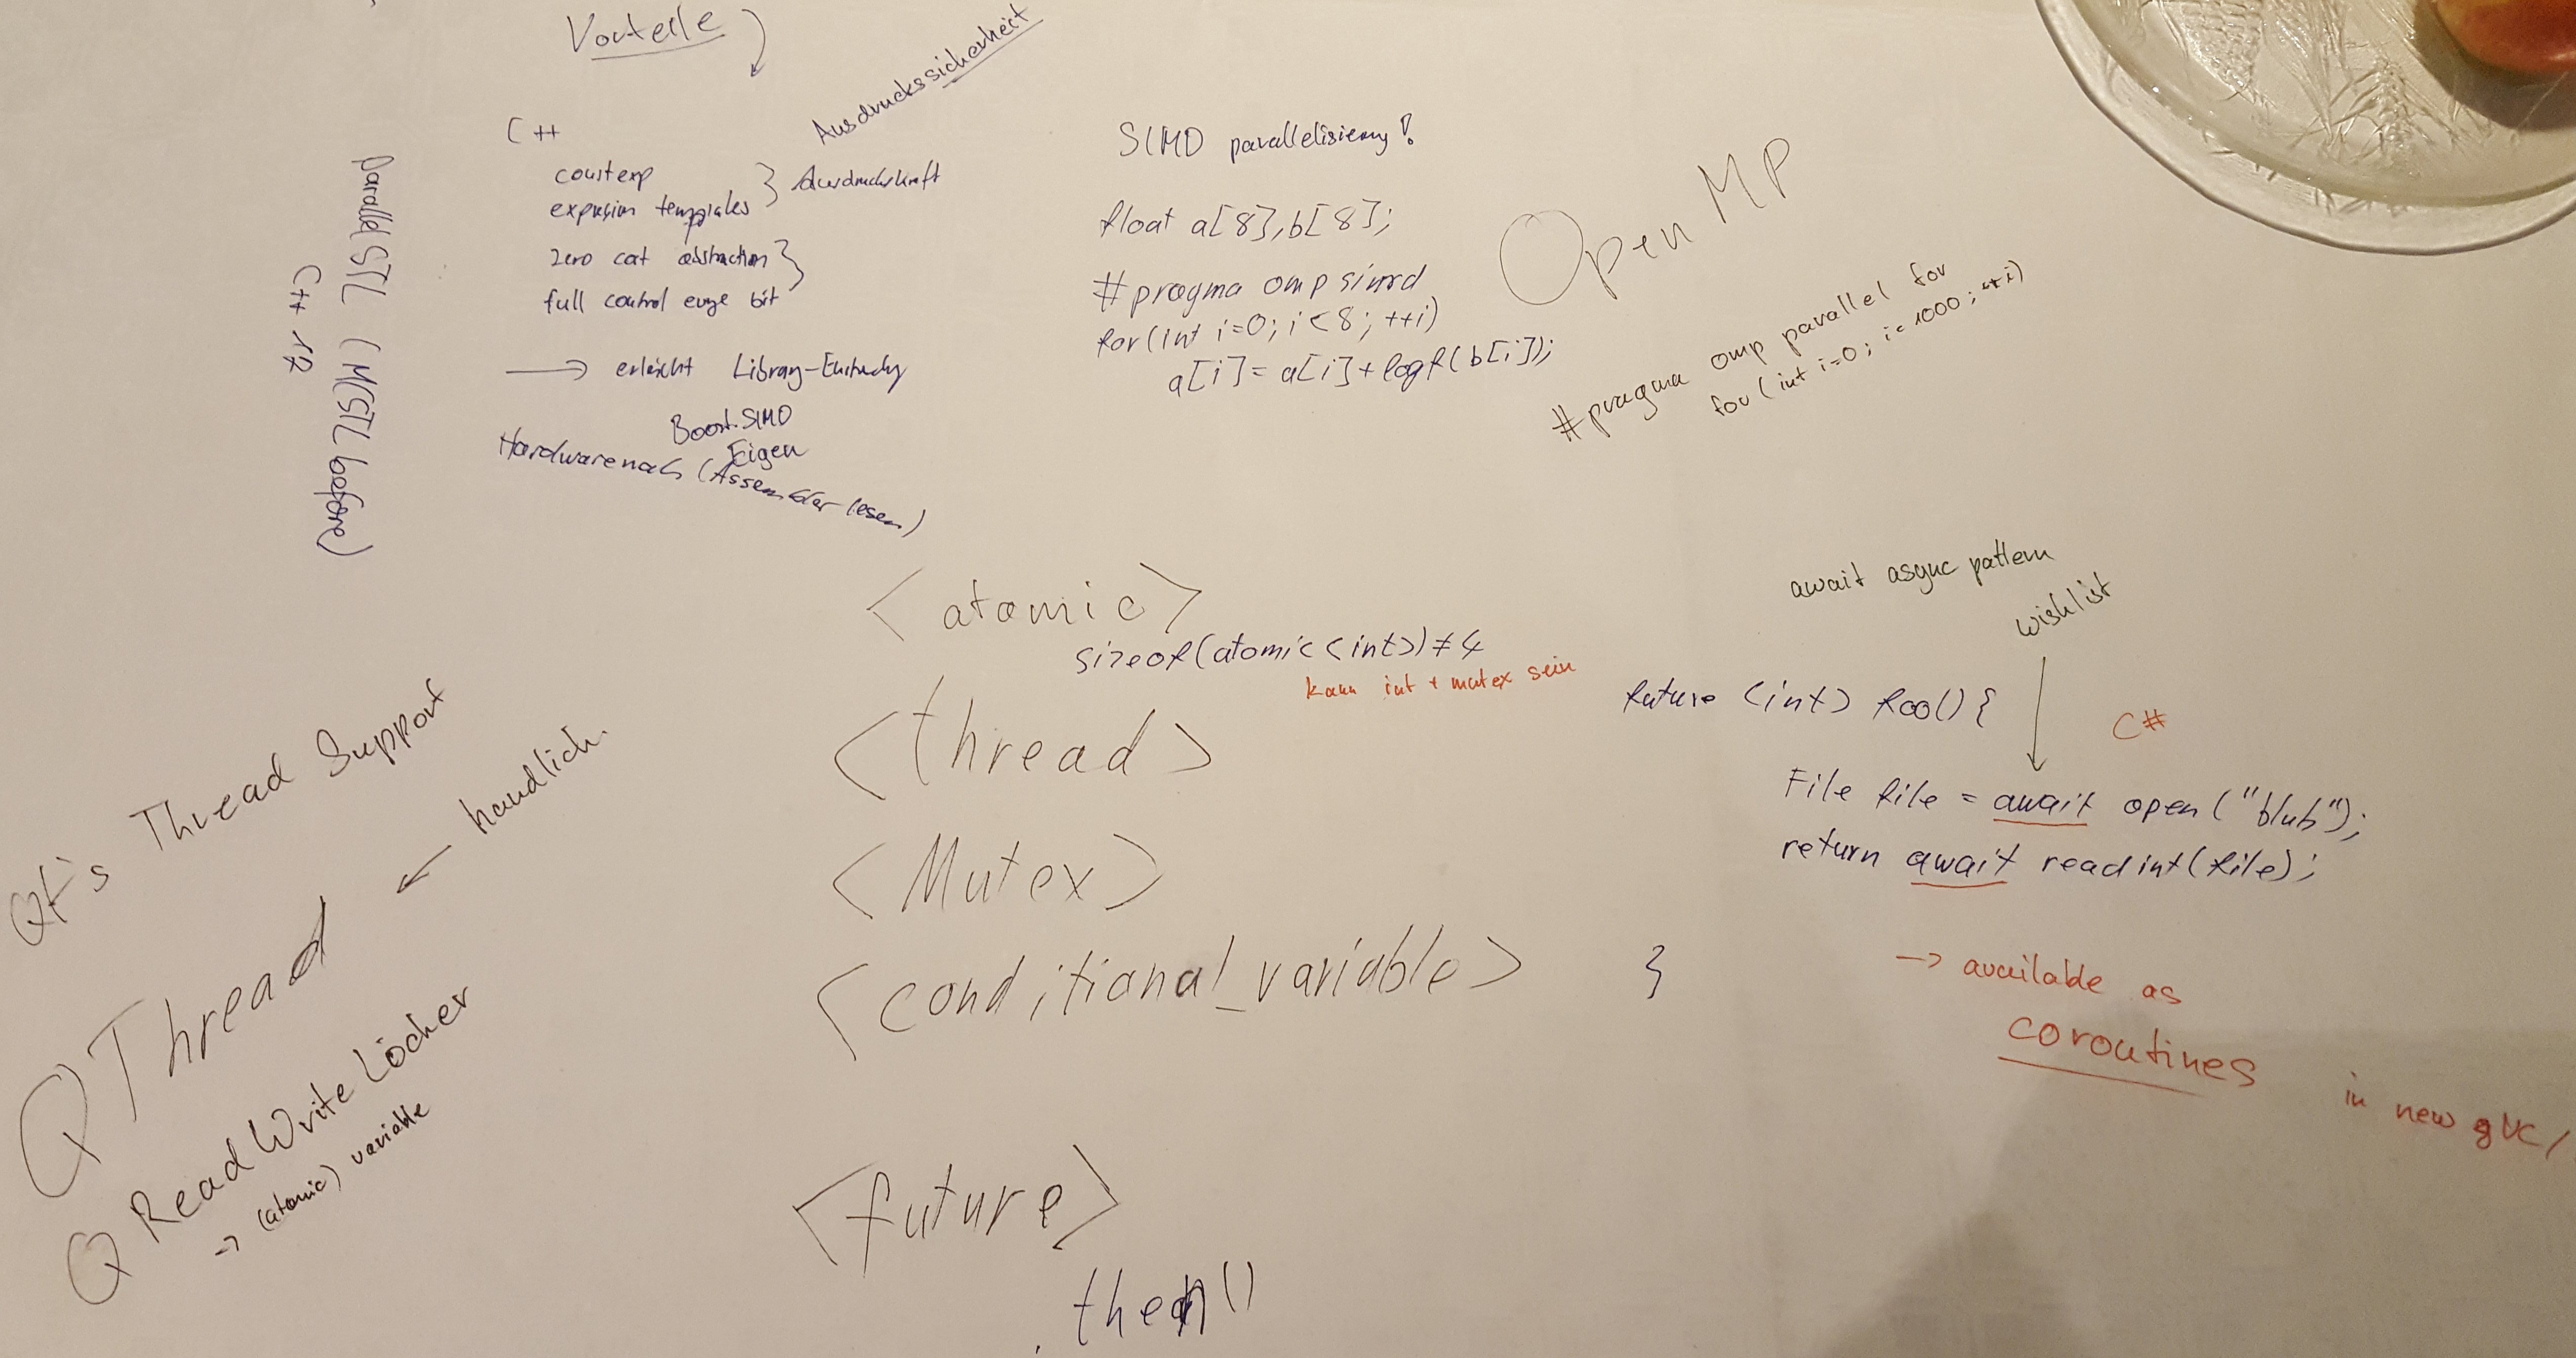 Vorteile
Ausdruckssicherheit
C++
constexp
expression templates } Ausdruckskraft
zero cost abstraction }
full control every bit
→ erleicht Library-
Boost.SIMD
Eigen
Hardwarenah (Assembler lesen)
parallel STL (MCSTL before)
C++ 17
SIMD parallelisierung!
float a[8], b[8];
#pragma omp simd
for(int i=0; i<8; ++i)
a[i] = a[i] + logf(b[i]);
Open MP
#pragma omp parallel for
for (int i=0; i<1000; ++i)
<atomic>
sizeof(atomic<int>) ≠ 4
kann int + mutex sein
<thread>
<Mutex>
<conditional_variable>
<future>
.then()
await async pattern
wishlist
future <int> foo() {
C#
File file = await open("blub");
return await readint(file);
}
→ available as
coroutines
in new gVC/
Qt's Thread Support
← handlich.
QThread
QReadWriteLöcher
→ (atomic) variable